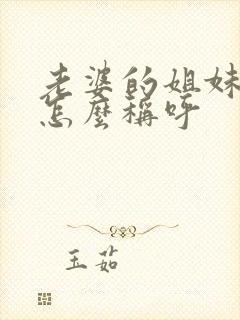 老婆的姐妹
怎麼稱呼
玉茹